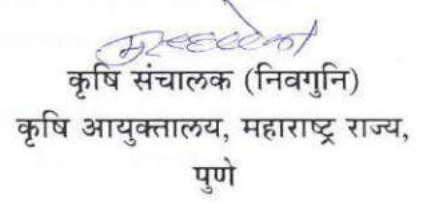 कृषि संचालक (निवगुनि)
कृषि आयुक्तालय, महाराष्ट्र राज्य,
पुणे